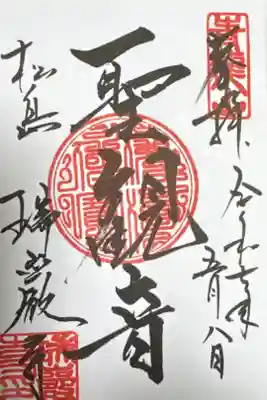 奉拝 令和七年
五月八日
聖観音
松島 瑞巌寺